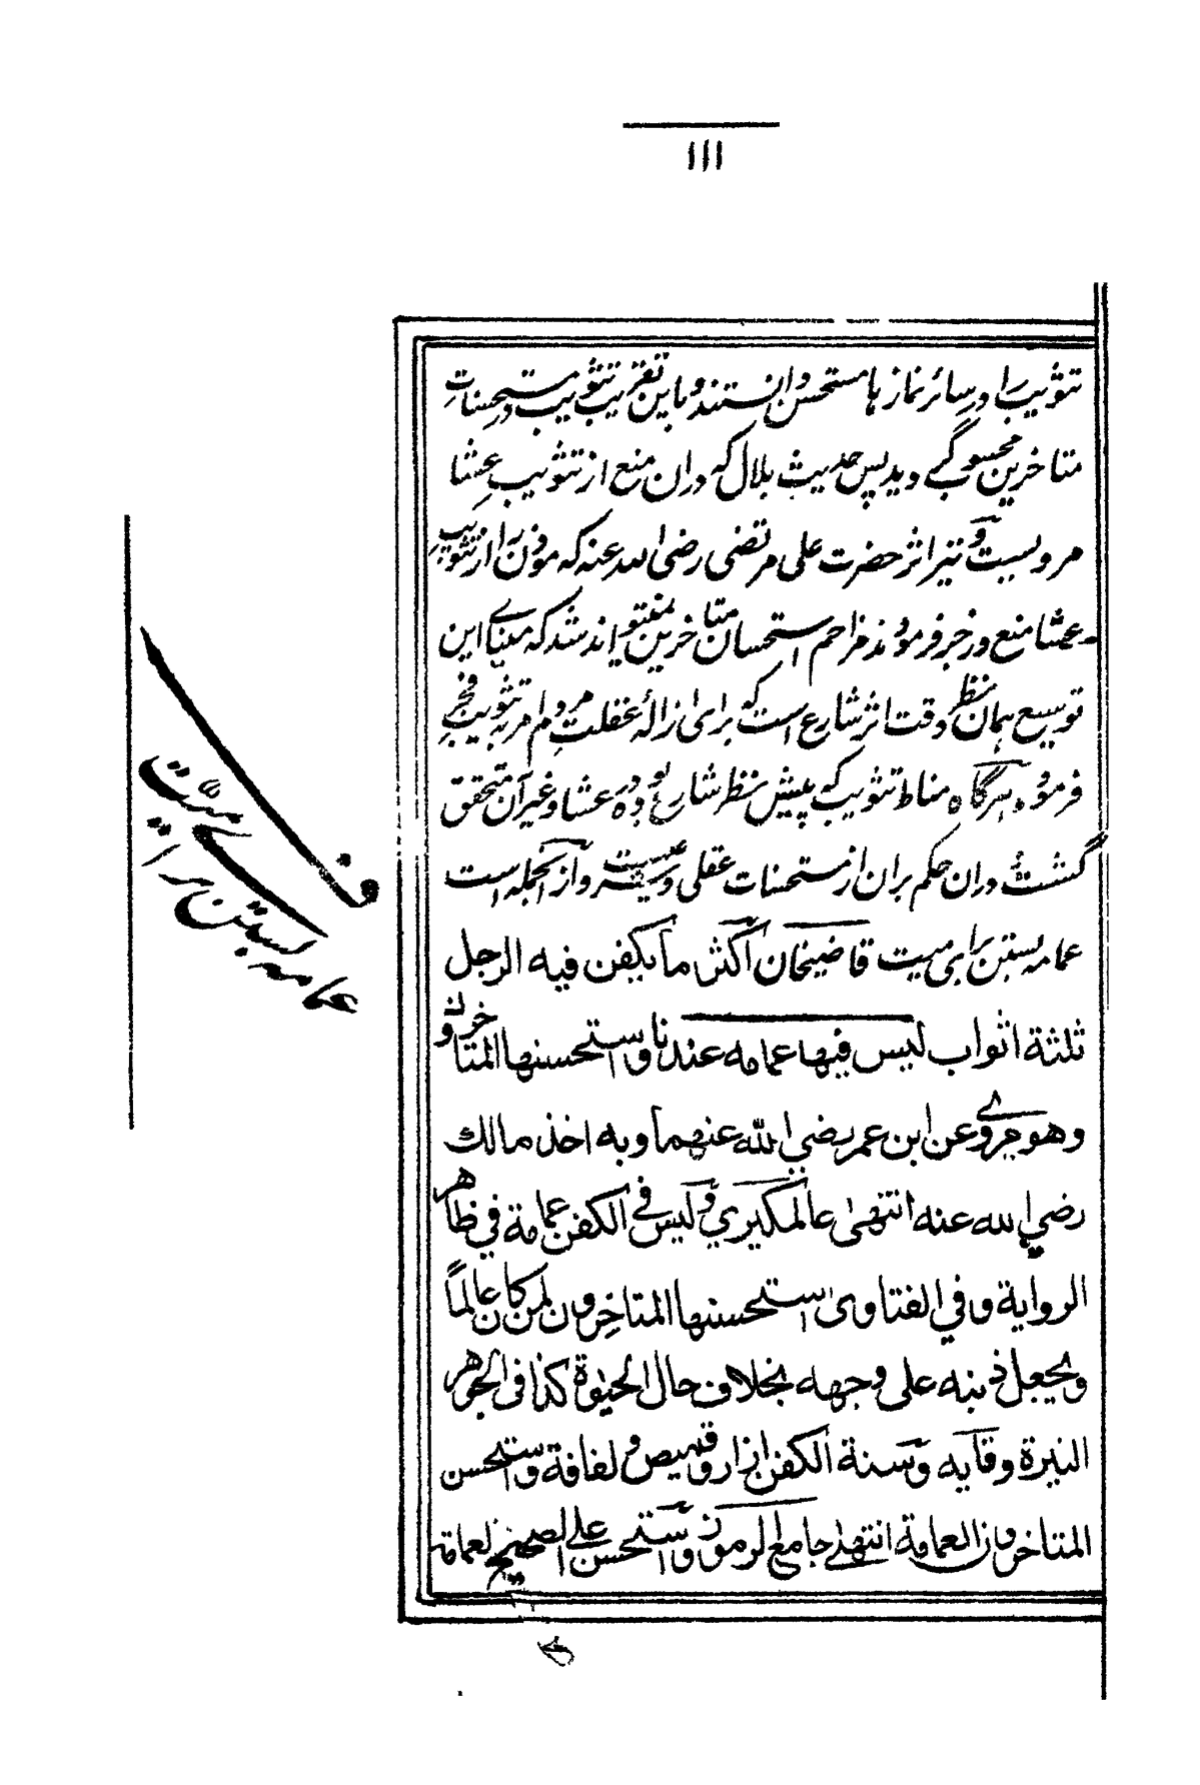 ١١١
تثویب را در سائر نمازها مستحسن دانستند و باین تقریب تثویب در مستحسنات
متاخرین محسوب گردید پس حدیث بلال که دران منع از تثویب عشا
مرویست و نیز اثر حضرت علی مرتضی رضی الله عنه که موذن را از تثویب
عشا منع و زجر فرمودند مزاحم استحسان متاخرین نمیتواند شد که مبنای این
توسیع همان نظر دقت اثر شارع است که برای ازالهٔ غفلت مردم امر به تثویب فجر
فرموده هرگاه مناط تثویب که پیش نظر شارع بوده در عشا و غیر آن متحقق
گشت دران حکم بران از مستحسنات عقلی و غیره و ازانجمله است
عمامه بستن برای میت قاضیخان اکثر ما یکفن فیه الرجل
ثلثة اثواب لیس فیها عمامه عندنا واستحسنها المتاخرون
وهو مروی عن ابن عمر رضی الله عنهما وبه اخذ مالك
رضی الله عنه انتهی عالمگیری ولیس فی الکفن عمامة فی ظاهر
الروایة وفی الفتاوی استحسنها المتاخرون لمن کان عالمًا
ویجعل ذنبه علی وجهه بخلاف حال الحیٰوة کذا فی الجوهر
النیرة وقایه وسنة الکفن ازار وقمیص ولفافة واستحسن
المتاخرون العمامة انتهی جامع الرموز واستحسن علی الصحیح العمامة
ف
عمامه بستن برای میت